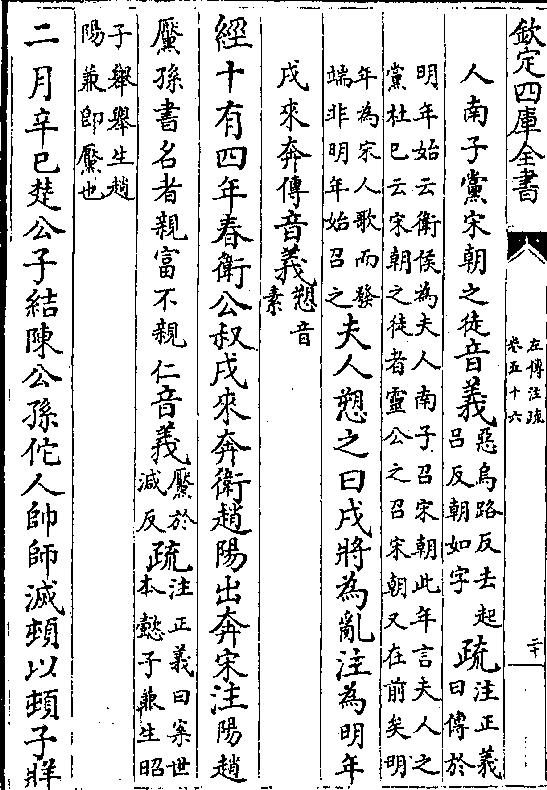 欽定四庫全書
左傳注疏
卷五十六
二十
人南子黨宋朝之徒音義惡烏路反去起
呂反朝如字疏注正義
曰傳於
明年始云衛侯為夫人南子召宋朝此年言夫人之
黨杜已云宋朝之徒者靈公之召宋朝又在前矣明
年為宋人歌而發
端非明年始召之夫人愬之曰戌將為亂注為明年
戌來奔傳音義愬音
素
經十有四年春衛公叔戌來奔衛趙陽出奔宋注陽趙
黶孫書名者親富不親仁音義黶於
減反疏注正義曰案世
本懿子兼生昭
子舉舉生趙
陽兼即黶也
二月辛巳楚公子結陳公孫佗人帥師滅頓以頓子牂